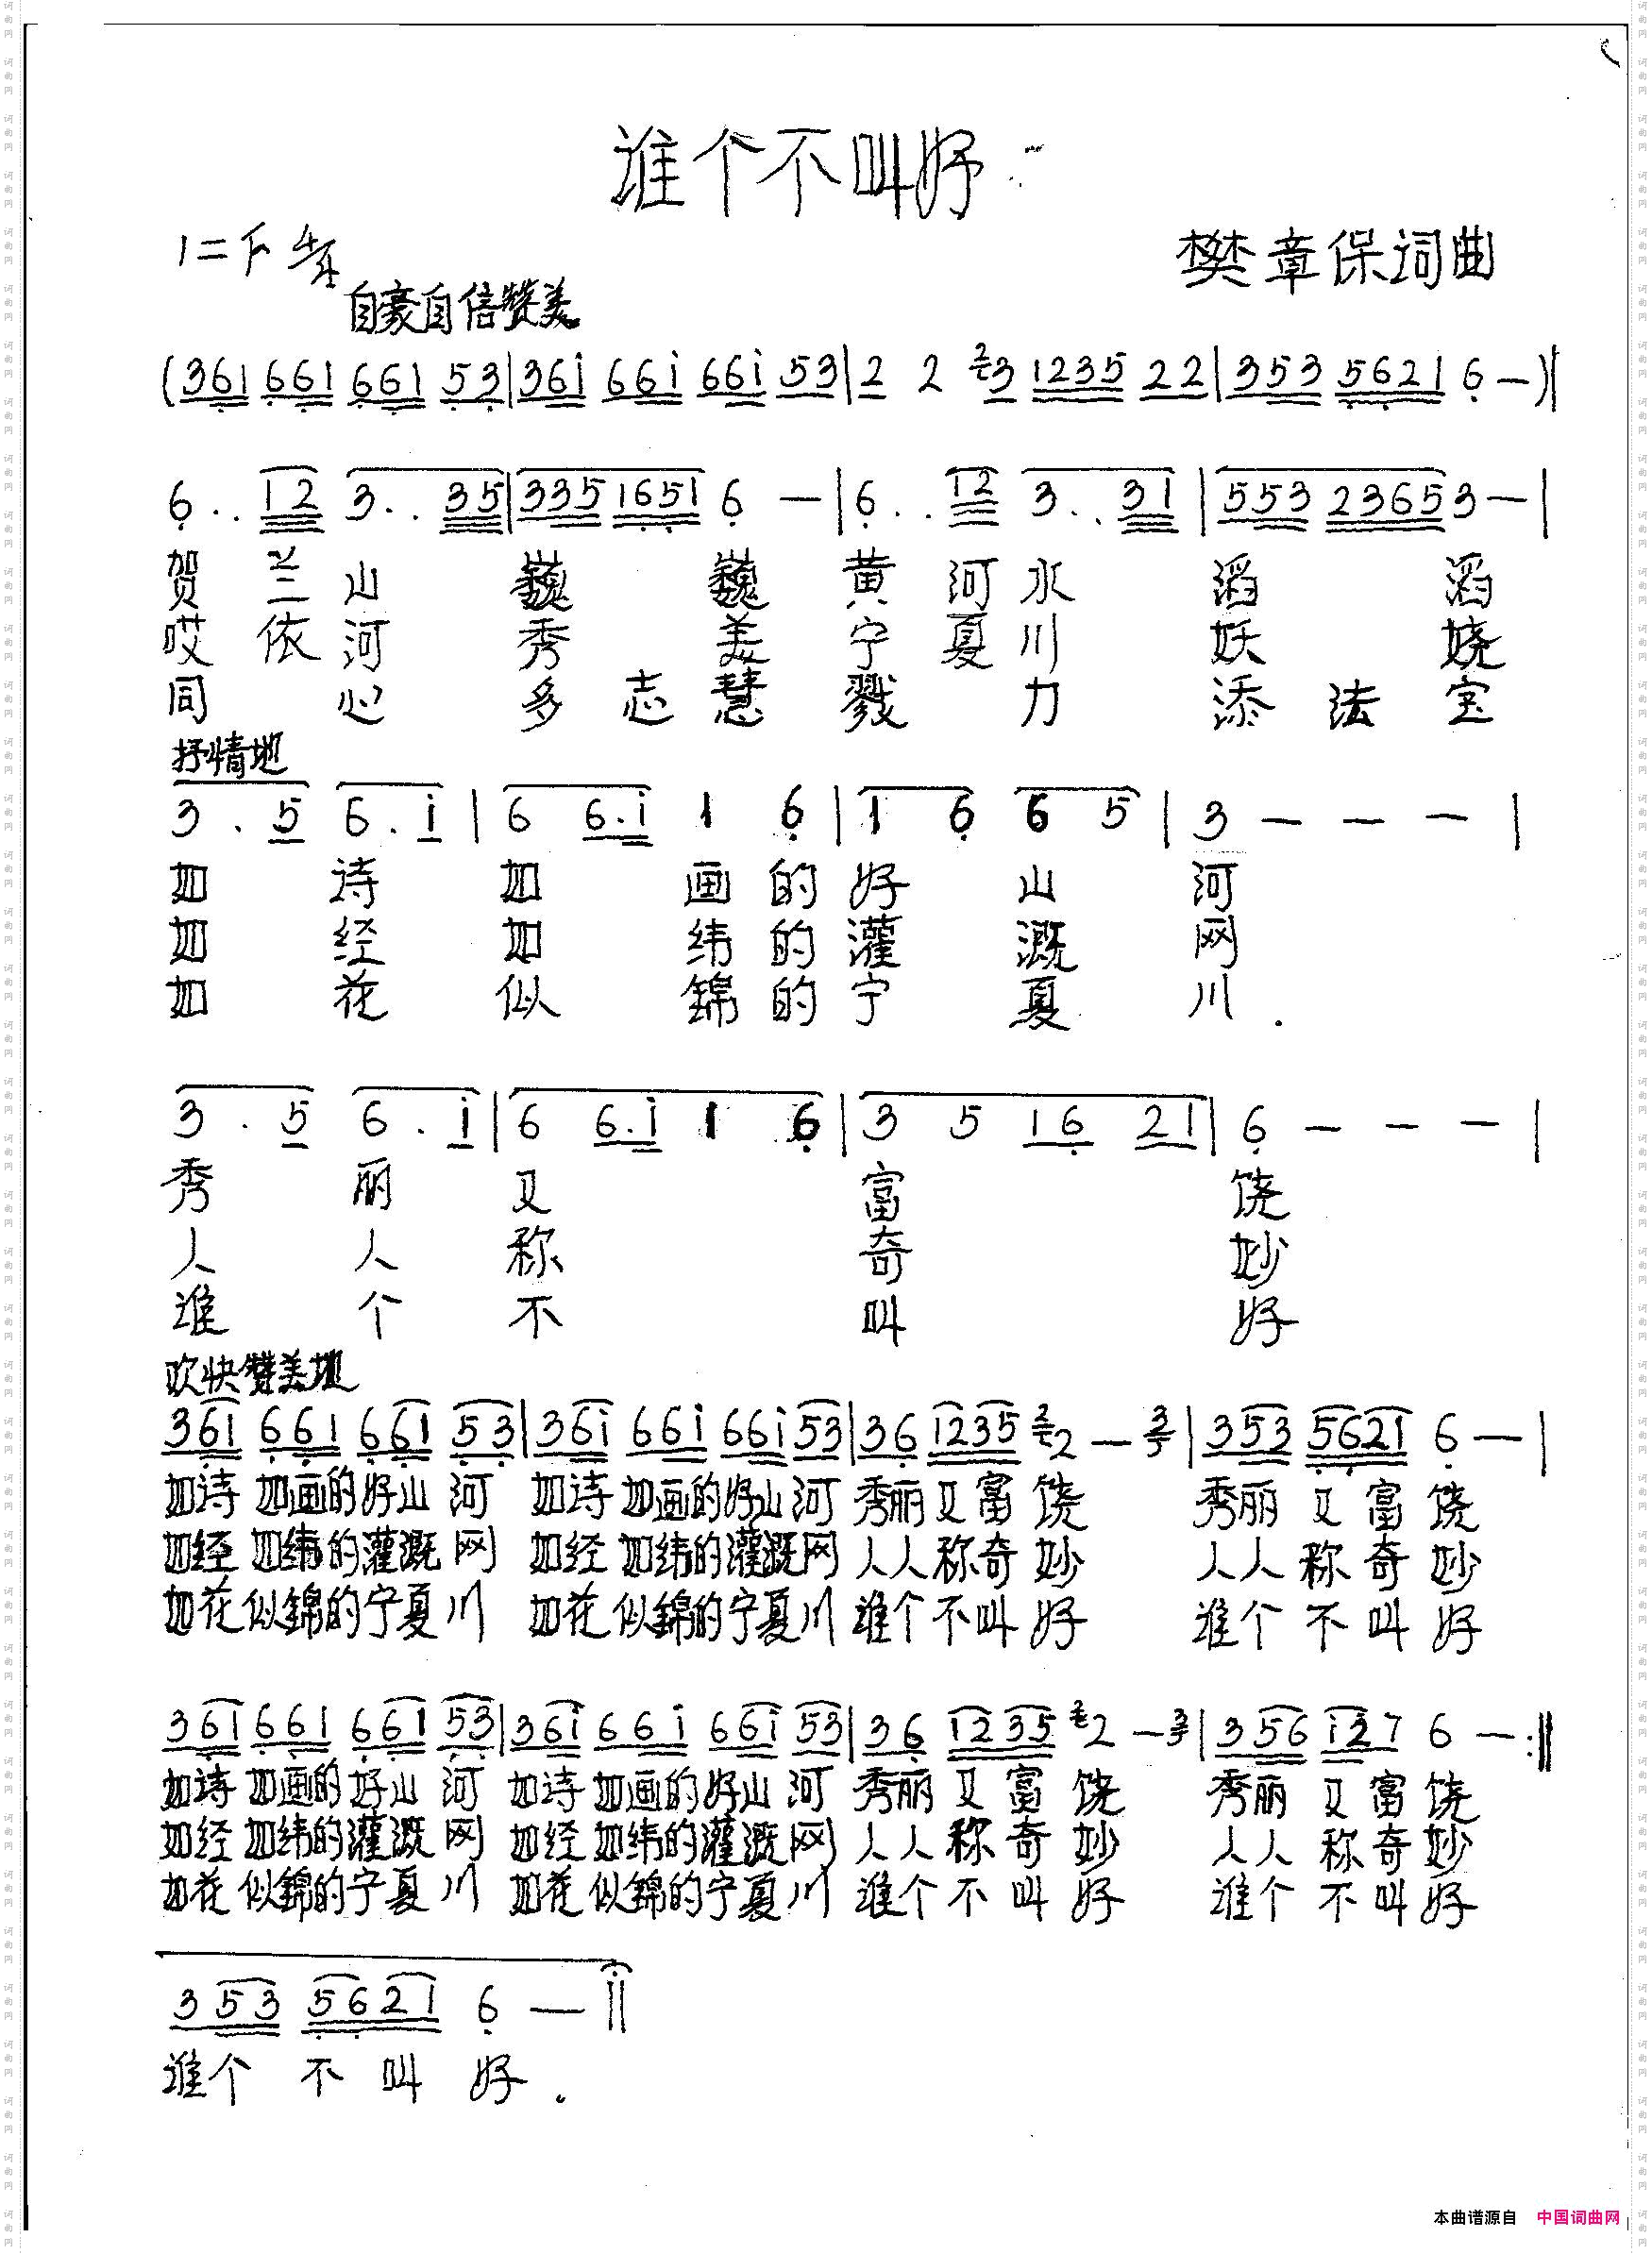 谁个不叫好
1=F 4/4
樊章保词曲
自豪自信赞美
(361 661 661 53|36i 66i 66i 53|2 2 3 1235 22|353 5621 6 —)|
6.. 12 3.. 35|335 1651 6 —|6.. 12 3.. 31|553 2365 3—|
贺兰山巍巍黄河水滔滔
哎依河秀美宁夏川妖娆
同心多志慧戮力添法宝
抒情地
3 . 5 6 . i|6 6.i 1 6|1 6 6 5|3 — — —|
如诗如画的好山河
如经如纬的灌溉网
如花似錦的宁夏川.
3 . 5 6 . i|6 6.i 1 6|3 5 16 21|6 — — —|
秀丽又富饶
人人称奇妙
谁个不叫好
欢快赞美地
361 661 661 53|36i 66i 66i 53|36 1235 2 —|353 5621 6 —|
如诗如画的好山河 如诗如画的好山河 秀丽又富饶 秀丽又富饶
如经如纬的灌溉网 如经如纬的灌溉网 人人称奇妙 人人称奇妙
如花似錦的宁夏川 如花似錦的宁夏川 谁个不叫好 谁个不叫好
361 661 661 53|36i 66i 66i 53|36 1235 2 —|356 i27 6 —:||
如诗如画的好山河 如诗如画的好山河 秀丽又富饶 秀丽又富饶
如经如纬的灌溉网 如经如纬的灌溉网 人人称奇妙 人人称奇妙
如花似錦的宁夏川 如花似錦的宁夏川 谁个不叫好 谁个不叫好
353 5621 6 — ||
谁个不叫好.
本曲谱源自 中国词曲网